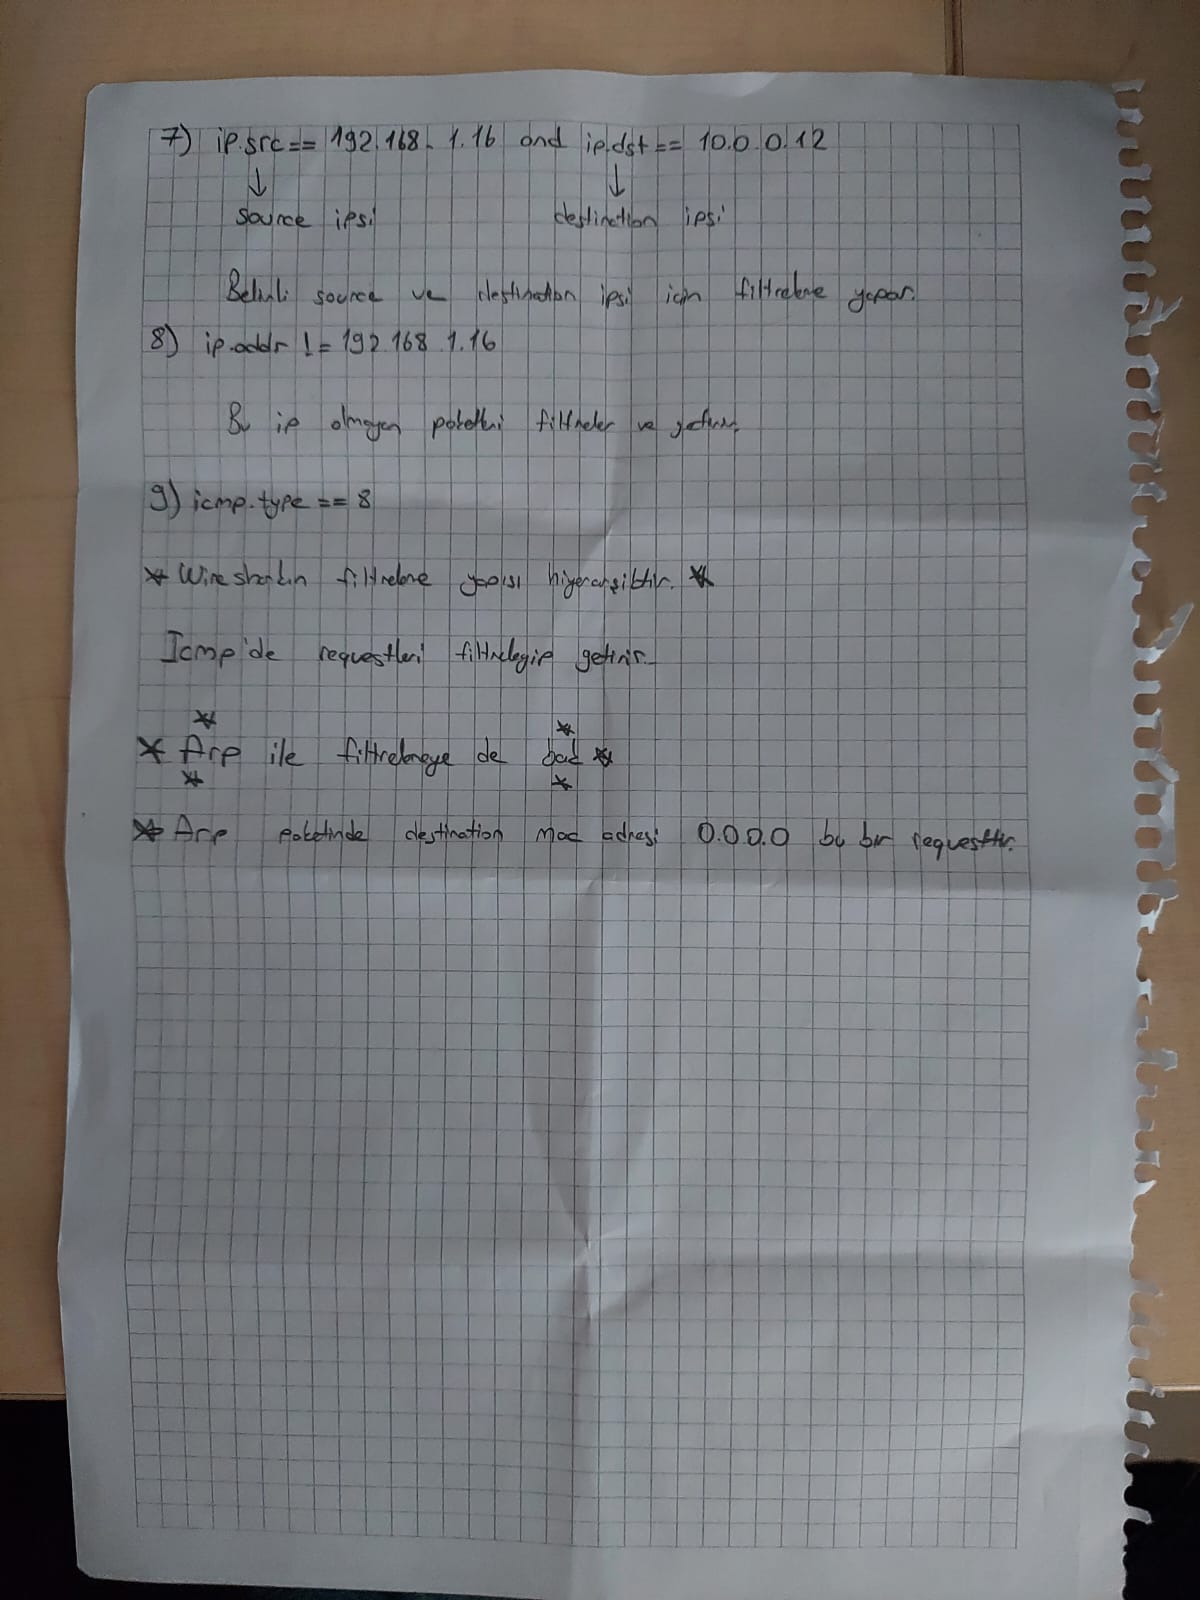 7) ip.src== 192.168.1.16 and ip.dst == 10.0.0.12
↓ ↓
source ipsi destination ipsi
Belirli source ve destination ipsi için filtreleme yapar.
8) ip.addr != 192.168.1.16
Bu ip olmayan paketleri filtreler ve getirir.
9) icmp.type == 8
* Wiresharkın filtreleme yapısı hiyerarşiktir. *
Icmp'de requestleri filtreleyip getirir.
* Arp ile filtrelemeye de bak *
* Arp paketinde destination mac adresi 0.0.0.0 bu bir requesttir.